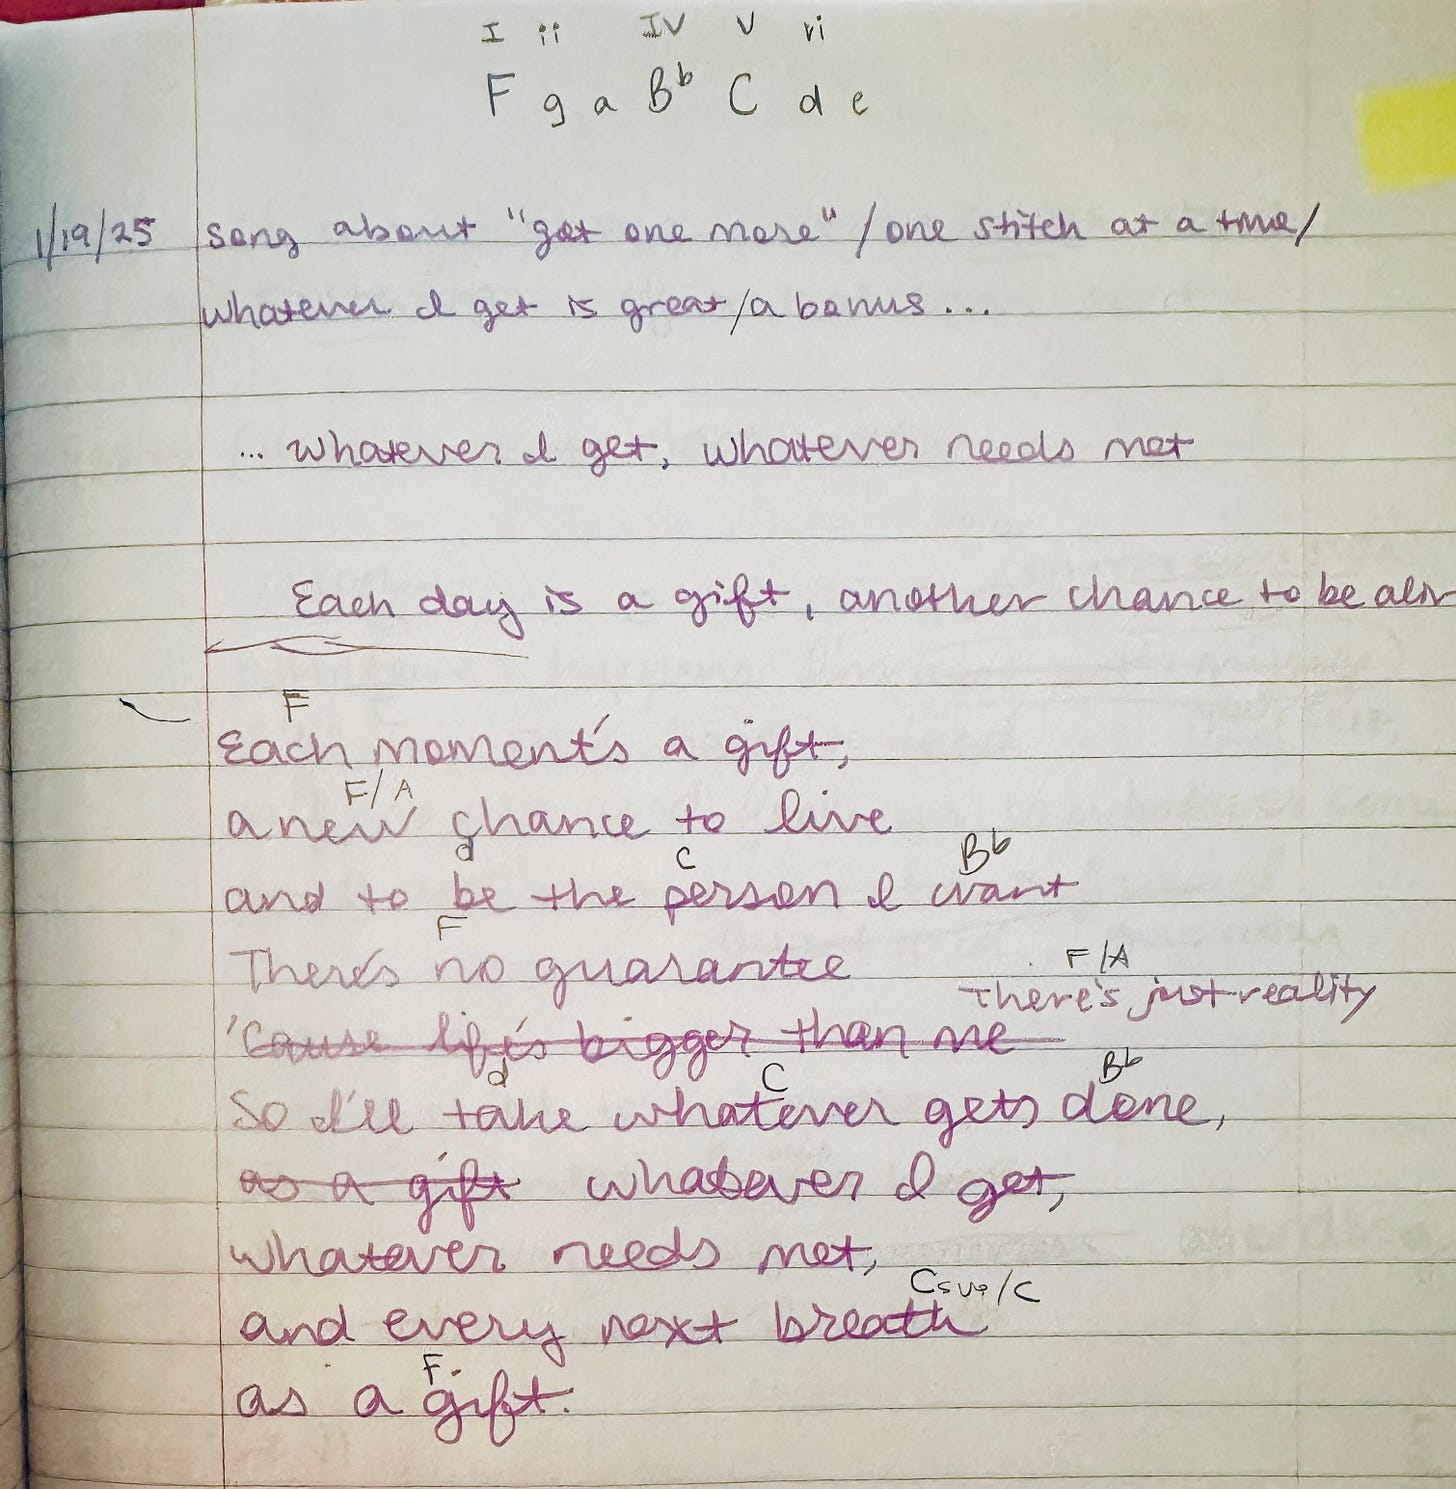 I ii IV V vi
F g a Bb C d e
1/19/25 Song about "get one more" / one stitch at a time /
whatever I get is great/a bonus...
... whatever I get, whatever needs met
Each day is a gift, another chance to be aliv
F
Each moment's a gift,
F/A
a new chance to live
d C Bb
and to be the person I want
F
There's no guarantee
F/A
There's just reality
'Cause life's bigger than me
d C Bb
So I'll take whatever gets done,
as a gift whatever I get,
whatever needs met,
Csus/C
and every next breath
F
as a gift.